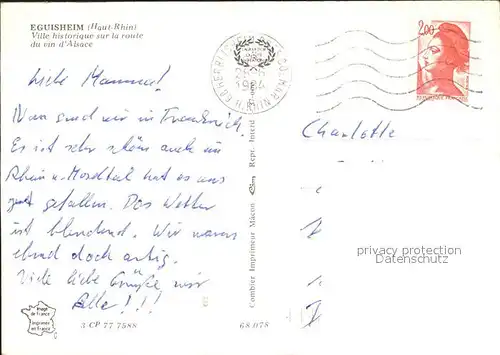 EGUISHEIM (Haut-Rhin)
Ville historique sur la route
du vin d'Alsace
2,00
Liebe Mamma!
Nun sind wir in Frankreich.
Es ist sehr schön auch im
Rhein u. Moseltal hat es uns
gut gefallen. Das Wetter
ist blendend. Wir waren
eben doch artig.
Viele liebe Grüße, wir
Alle!!!
Charlotte
privacy protection
AnsichtskartenKatalog
Combier Imprimeur Mâcon
Repr. Interd
Image
de France
Imprimée
en France
3 CP 77 7588
68.078